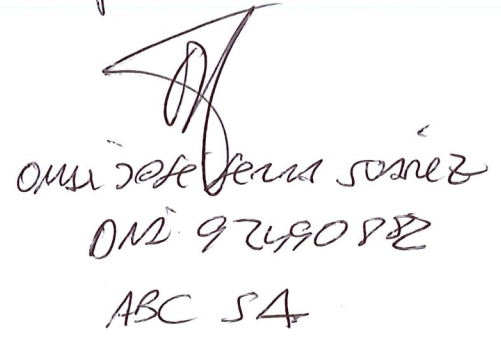 Omar Jose Serra Suárez
DNI 92490882
ABC SA